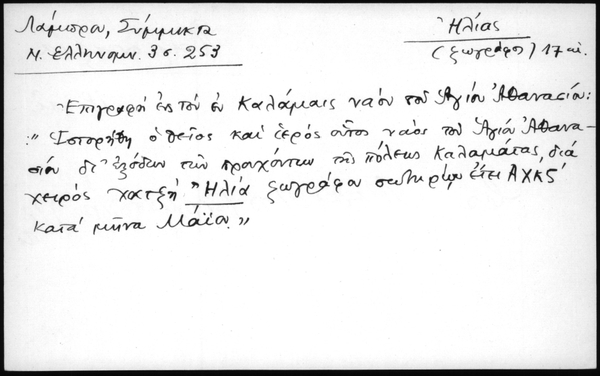 Λάμπρου, Σύμμικτα
Ν. Ελληνομν. 3 σ. 253
Ἠλίας
(ζωγράφος) 17 αἰ.
Ἐπιγραφή ἐκ τοῦ ἐν Καλάμαις ναοῦ τοῦ Ἁγίου Ἀθανασίου:
"Ἱστορήθη ὁ θεῖος καί ἱερός οὗτος ναός τοῦ Ἁγίου Ἀθανα-
σίου δι' ἐξόδων τῶν πραχόντων τῆς πόλεως Καλαμάτας, διά
χειρός χατζῆ Ἠλία ζωγράφου σωτηρίῳ ἔτει ΑΧΚϚ'
κατά μῆνα Μάϊον."